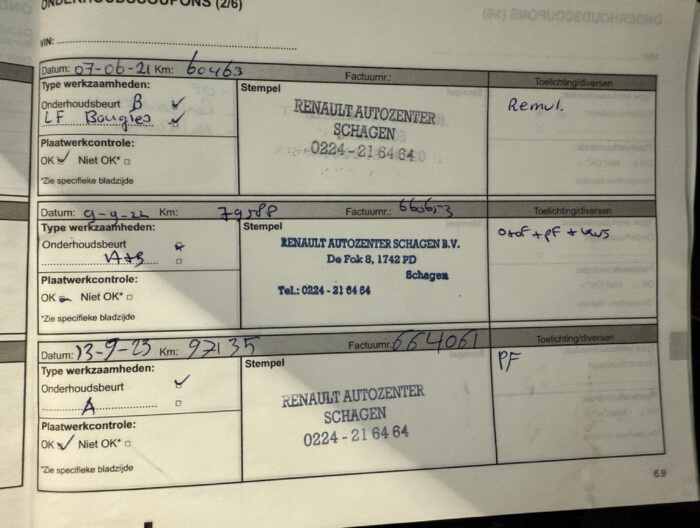 ONDERHOUDSCOUPONS (2/6)
VIN:
Datum: 07-06-21 Km: 60463 Factuurnr.: Toelichting/diversen
Type werkzaamheden: Stempel
Onderhoudsbeurt B
LF Bougies
Plaatwerkcontrole:
OK Niet OK*
*Zie specifieke bladzijde
RENAULT AUTOZENTER
SCHAGEN
0224-21 64 64
Remvl.
Datum: 9-9-22 Km: 79588 Factuurnr.: Toelichting/diversen
Type werkzaamheden: Stempel
Onderhoudsbeurt
A+B
Plaatwerkcontrole:
OK Niet OK*
*Zie specifieke bladzijde
RENAULT AUTOZENTER SCHAGEN B.V.
De Fok 8, 1742 PD
Schagen
Tel.: 0224-21 64 64
+ pf +
Datum: 13-9-23 Km: 97135 Factuurnr.: 664061 Toelichting/diversen
Type werkzaamheden: Stempel
Onderhoudsbeurt
A
Plaatwerkcontrole:
OK Niet OK*
*Zie specifieke bladzijde
RENAULT AUTOZENTER
SCHAGEN
0224-21 64 64
PF
6.9